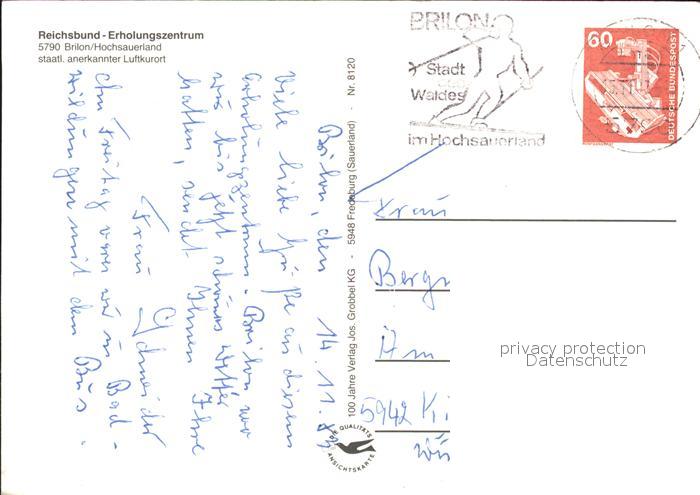 Reichsbund - Erholungszentrum
5790 Brilon/Hochsauerland
staatl. anerkannter Luftkurort
BRILON
Stadt
Waldes
im Hochsauerland
60
DEUTSCHE BUNDESPOST
Brilon, den 14.11.83
Viele liebe Grüße aus diesem
Erholungszentrum. Brilon, wo
wir bis jetzt schönes Wetter
hatten, sendet Ihnen Ihre
Frau Schneider
Am Freitag waren wir in Bad-
Wildungen mit dem Bus.
100 Jahre Verlag Jos. Grobbel KG - 5948 Fredeburg (Sauerland) - Nr. 8120
QUALITÄTS
ANSICHTSKARTE
Frau
Berg
Am
5942 Ki
privacy protection
Datenschutz